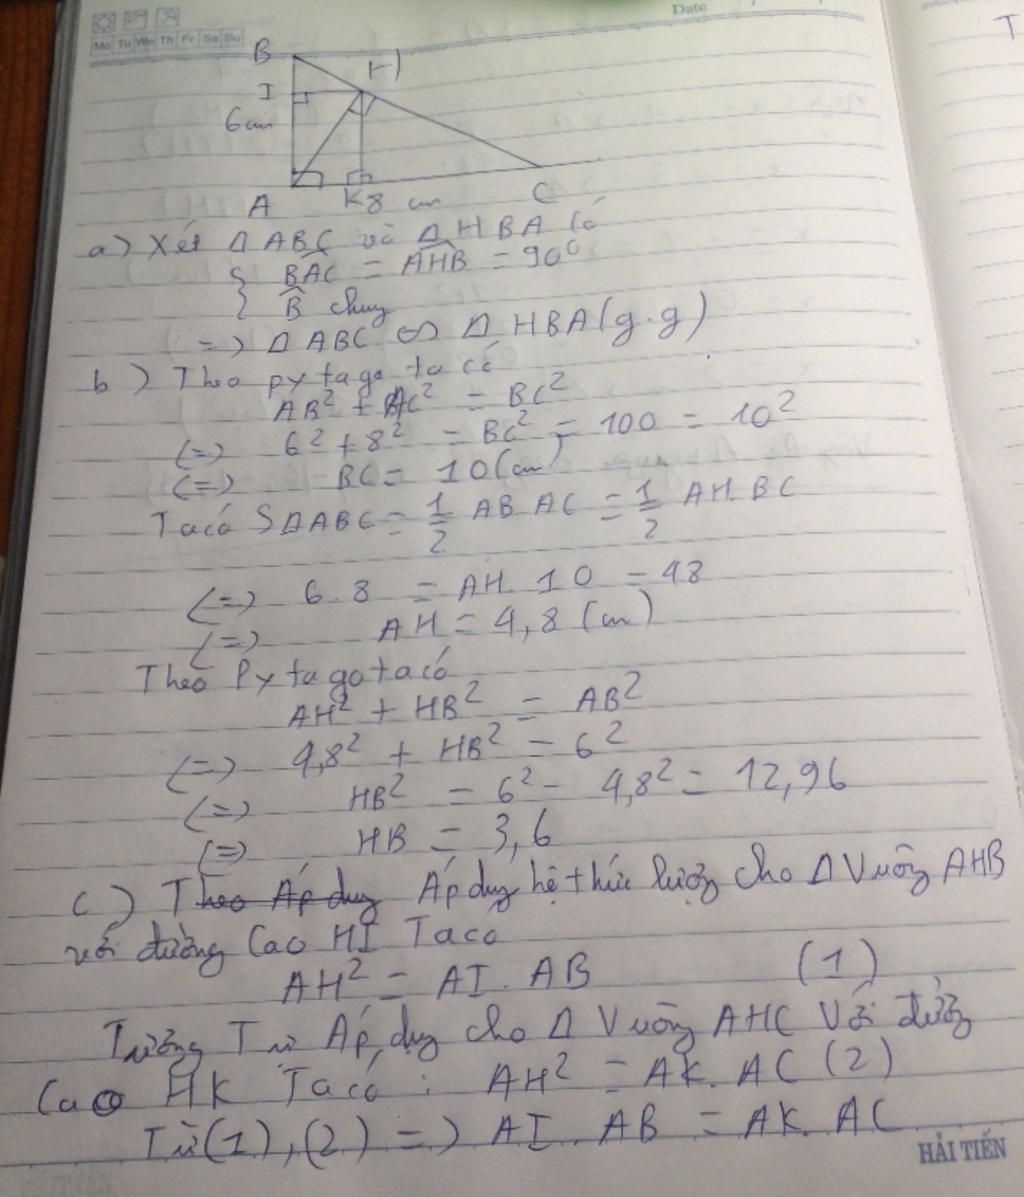 Date
Mo Tu We Th Fr Sa Su
T
B
H
I
6cm
A
K
8 cm
C
a) Xét Δ ABC và Δ HBA Có
{ BAC = AHB = 90⁰
B chung
=> Δ ABC ∽ Δ HBA (g.g)
b) Theo pytago ta có
AB² + AC² = BC²
<=> 6² + 8² = BC² = 100 = 10²
<=> BC = 10 (cm)
Ta có SΔABC = 1/2 AB AC = 1/2 AH. BC
<=> 6.8 = AH. 10 = 48
<=> AH = 4,8 (cm)
Theo Pytago ta có
AH² + HB² = AB²
<=> 4,8² + HB² = 6²
<=> HB² = 6² - 4,8² = 12,96
<=> HB = 3,6
c) Theo Áp dụng Áp dụng hệ thức lượng cho Δ Vuông AHB
với đường Cao HI Ta có
AH² = AI. AB (1)
Tương Tự Áp dụng cho Δ Vuông AHC Với đường
Cao HK Ta có : AH² = AK. AC (2)
Từ (1), (2) => AI. AB = AK. AC
HẢI TIẾN